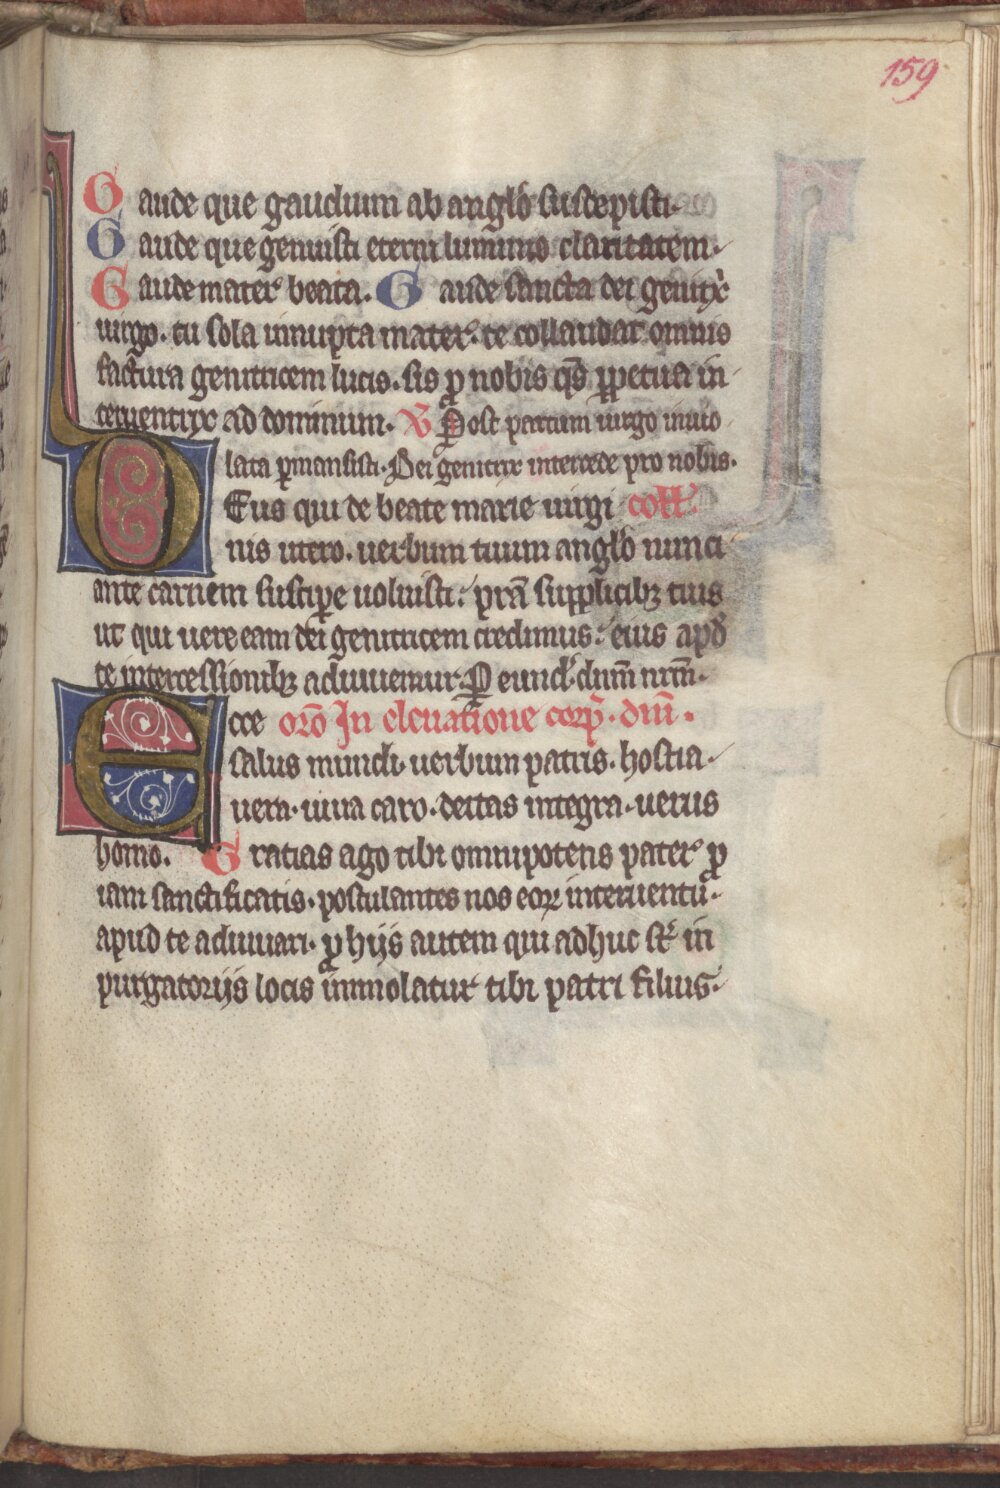 159
Gaude que gaudium ab anglo suscepisti.
Gaude que genuisti eterni luminis claritatem.
Gaude mater beata. Gaude sancta dei genitrix
uirgo. tu sola innupta mater. te collaudat omnis
factura genitricem lucis. sis ꝓ nobis qs̄ ꝑpetua in
teruentrix ad dominum. ℣ Post partum uirgo inuio
lata ꝑmansisti. Dei genitrix intercede pro nobis.
Deus qui de beate marie uirgi coll̄
nis utero. uerbum tuum anglo nunci
ante carnem suscipe uoluisti: pra̅ supplicibꝫ tuis
ut qui uere eam dei genitricem credimus: eius apd̄
te intercessionibꝫ adiuuemur. Ꝑ eund̄. dum̄ nrm̄.
Ecce oro̅ In eleuatione corp̄. dni̅.
salus mundi. uerbum patris. hostia.
uera. uiua caro. deitas integra. uerus
homo. Gratias ago tibi omnipotens pater ꝓ
iam sanctificatis. postulantes nos eoꝝ interuentu̅.
apud te adiuuari. ꝓ hijs autem qui adhuc st̄ in
purgatorijs locis inmolatur tibi patri filius.